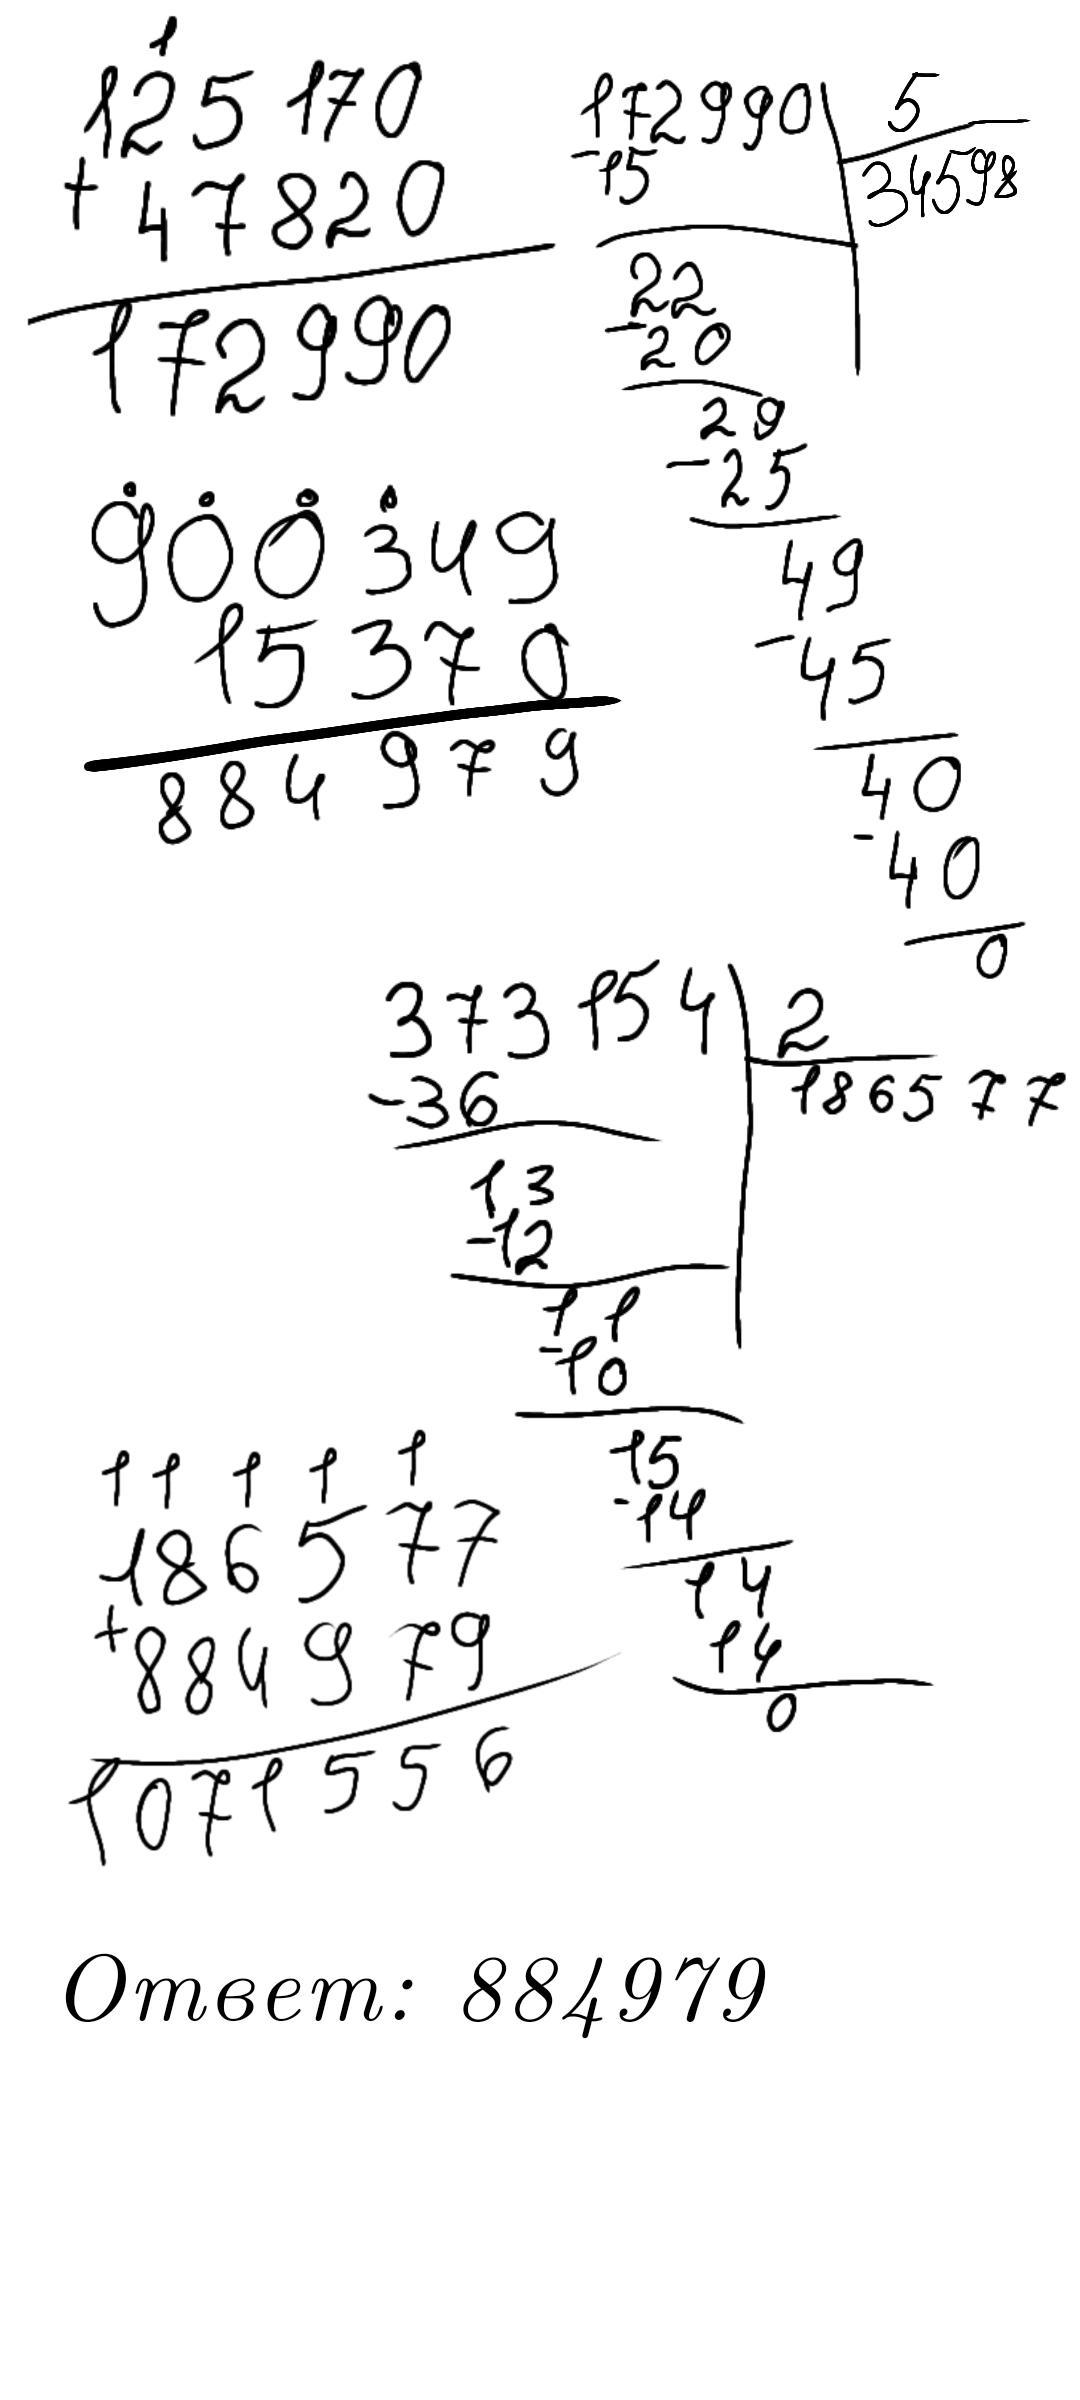 1
125 170
+ 47820
172990
172990 5
-15 34598
22
-20
29
-25
49
-45
40
-40
0
900 349
15 370
884 979
373 154 2
-36 186577
13
-12
11
-10
15
-14
14
14
0
1 1 1 1 1
186577
+884979
1071556
Ответ: 884979